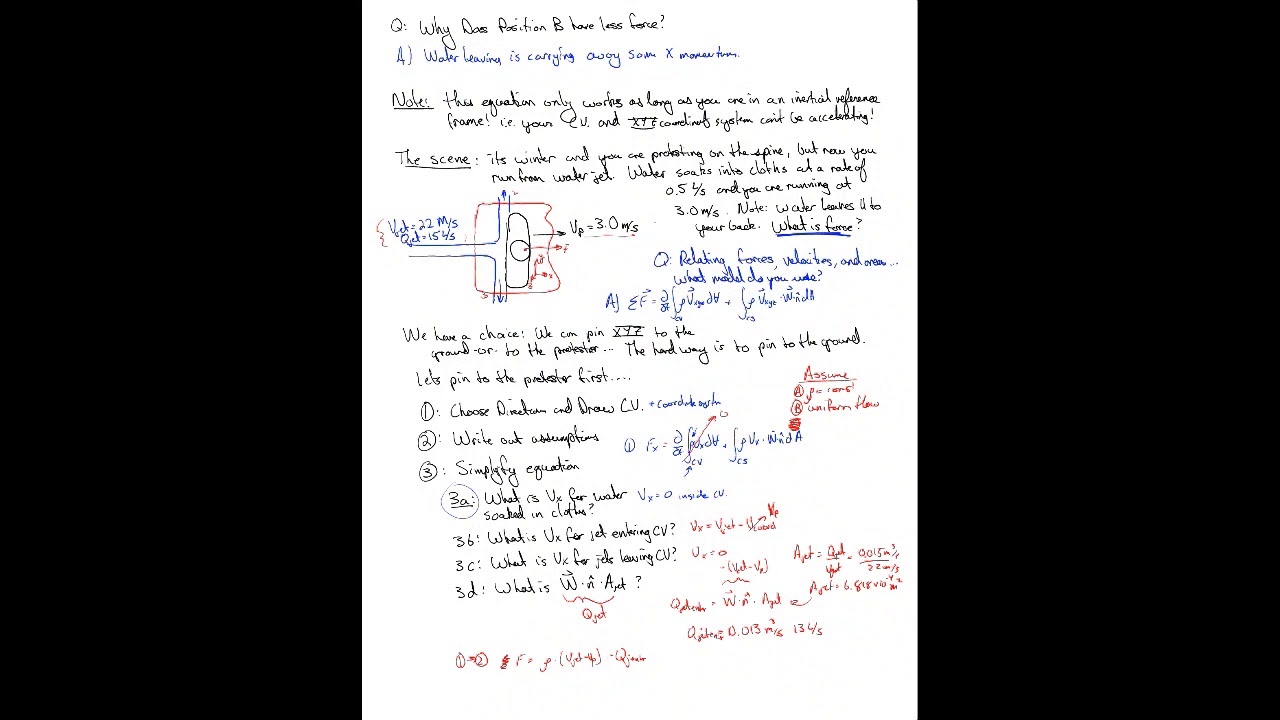 Q: Why Does Position B have less force?
A) Water leaving is carrying away some X momentum.
Note: this equation only works as long as you are in an inertial reference
frame! i.e. your C.V. and XYZ coordinate system can't be accelerating!
The scene: its winter and you are protesting on the spine, but now you
run from water jet. Water soaks into cloths at a rate of
0.5 L/s and you are running at
3.0 m/s. Note: water leaves 11 to
your back. What is force?
Vjet = 22 m/s
Qjet = 15 L/s
Vp = 3.0 m/s
Q: Relating forces, velocities, and areas...
What model do you use?
A) ΣF = ∂/∂t ∫cv ρ Vxyz d∀ + ∫cs ρ Vxyz · W·n̂ dA
We have a choice: We can pin XYZ to the
ground -or- to the protester... The hard way is to pin to the ground.
Lets pin to the protester first....
Assume
A ρ = const
B uniform flow
①: Choose Direction and Draw C.V. + coordinate system
②: Write out assumptions
① Fx = ∂/∂t ∫cv ρ Vx d∀ + ∫cs ρ Vx · W·n̂ dA
0
③: Simplyfy equation
3a: What is Vx for water Vx = 0 inside CV.
soaked in cloths?
3b: What is Vx for jet entering CV? Vx = Vjet -
Vp
3c: What is Vx for jets leaving CV? Vx = 0
-(Vjet - Vp)
Ajet = Qjet/Vjet = 0.015 m³/s / 22 m/s
3d: What is W·n̂·Ajet?
Ajet = 6.818 x10⁻⁴ m²
Qjet
Qjetenter = W·n̂·Ajet
Qjetenter = 0.013 m³/s 13 L/s
①→② F = ρ·(Vjet-Vp)·-Q